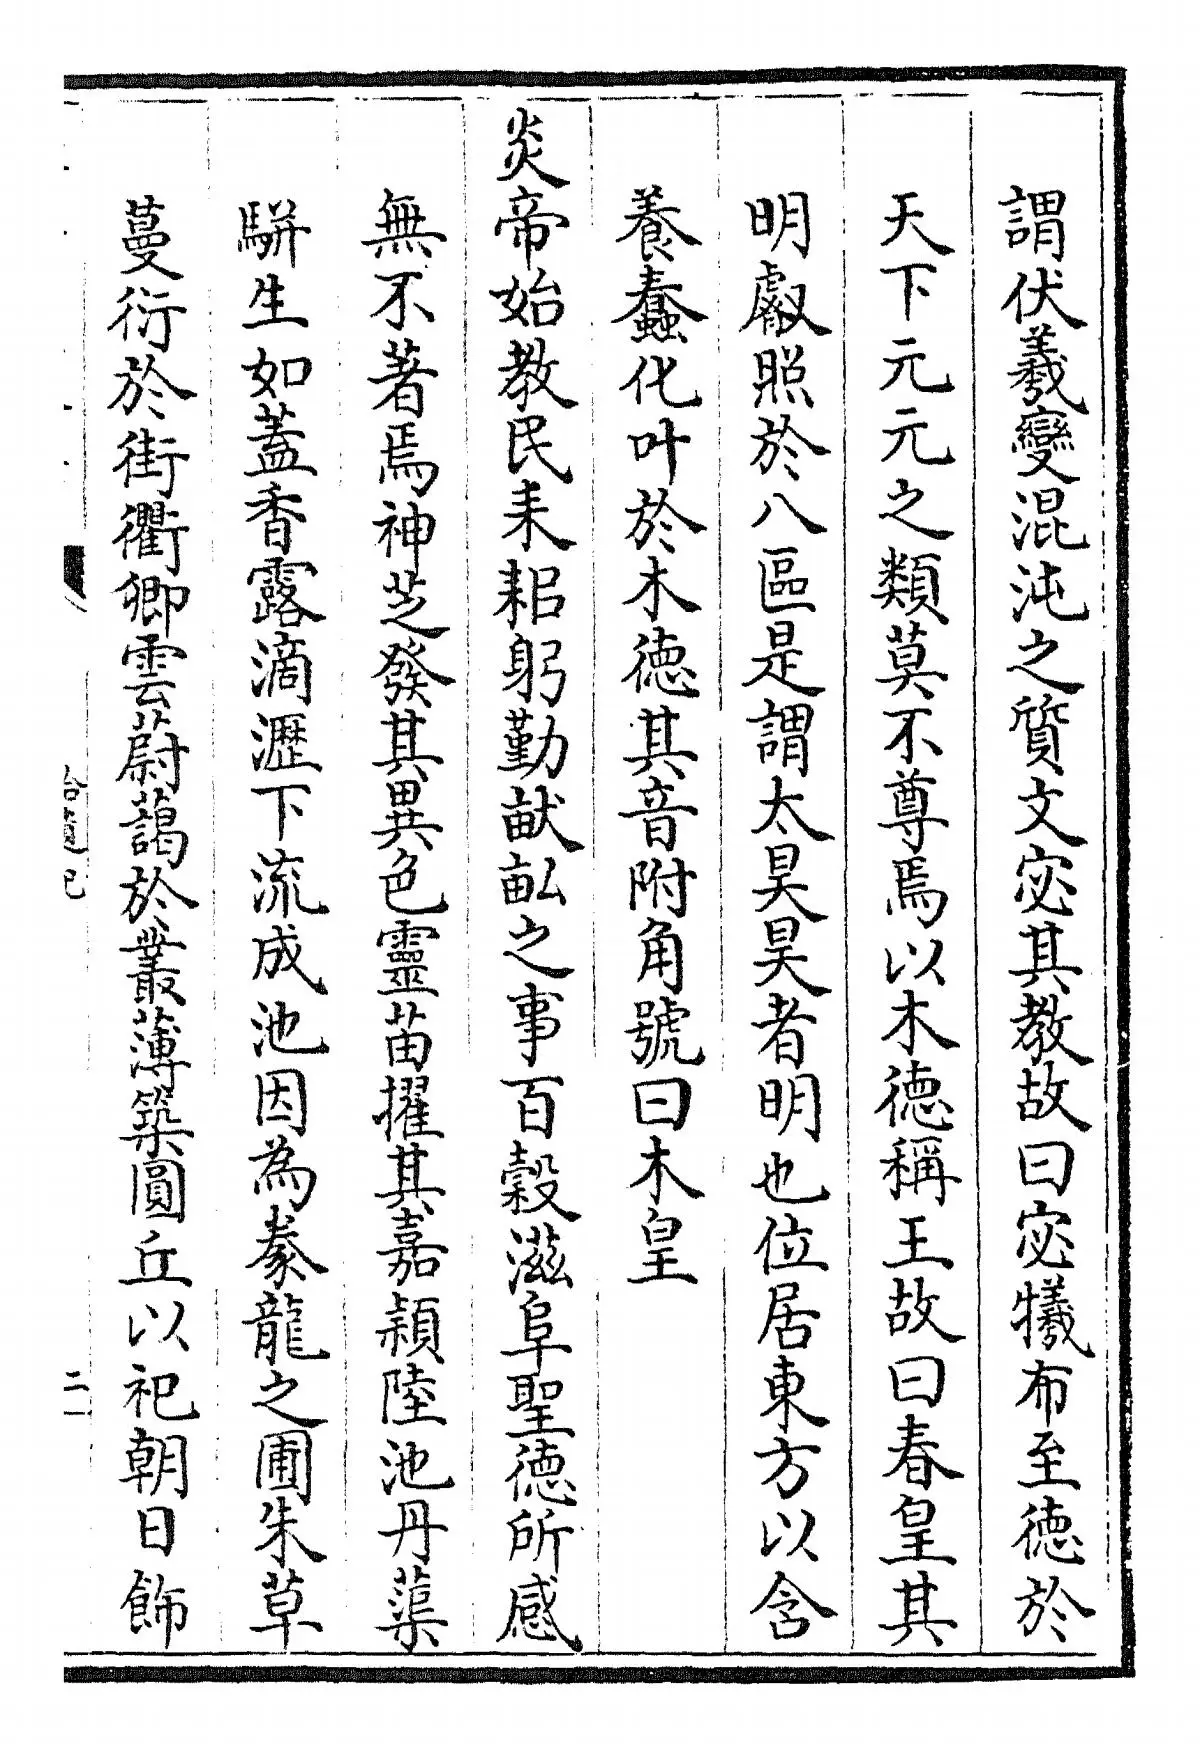 謂伏羲變混沌之質文宓其教故曰宓犧布至徳於
天下元元之類莫不尊焉以木徳稱王故曰春皇其
明叡照於八區是謂太昊昊者明也位居東方以含
養蠢化叶於木徳其音附角號曰木皇
炎帝始教民耒耜躬勤畎畆之事百榖滋阜聖徳所感
無不著焉神芝發其異色靈苗擢其嘉穎陸池丹蕖
駢生如蓋香露滴瀝下流成池因為豢龍之圃朱草
蔓衍於街衢卿雲蔚藹於叢薄築圓丘以祀朝日飾
拾遺記
二